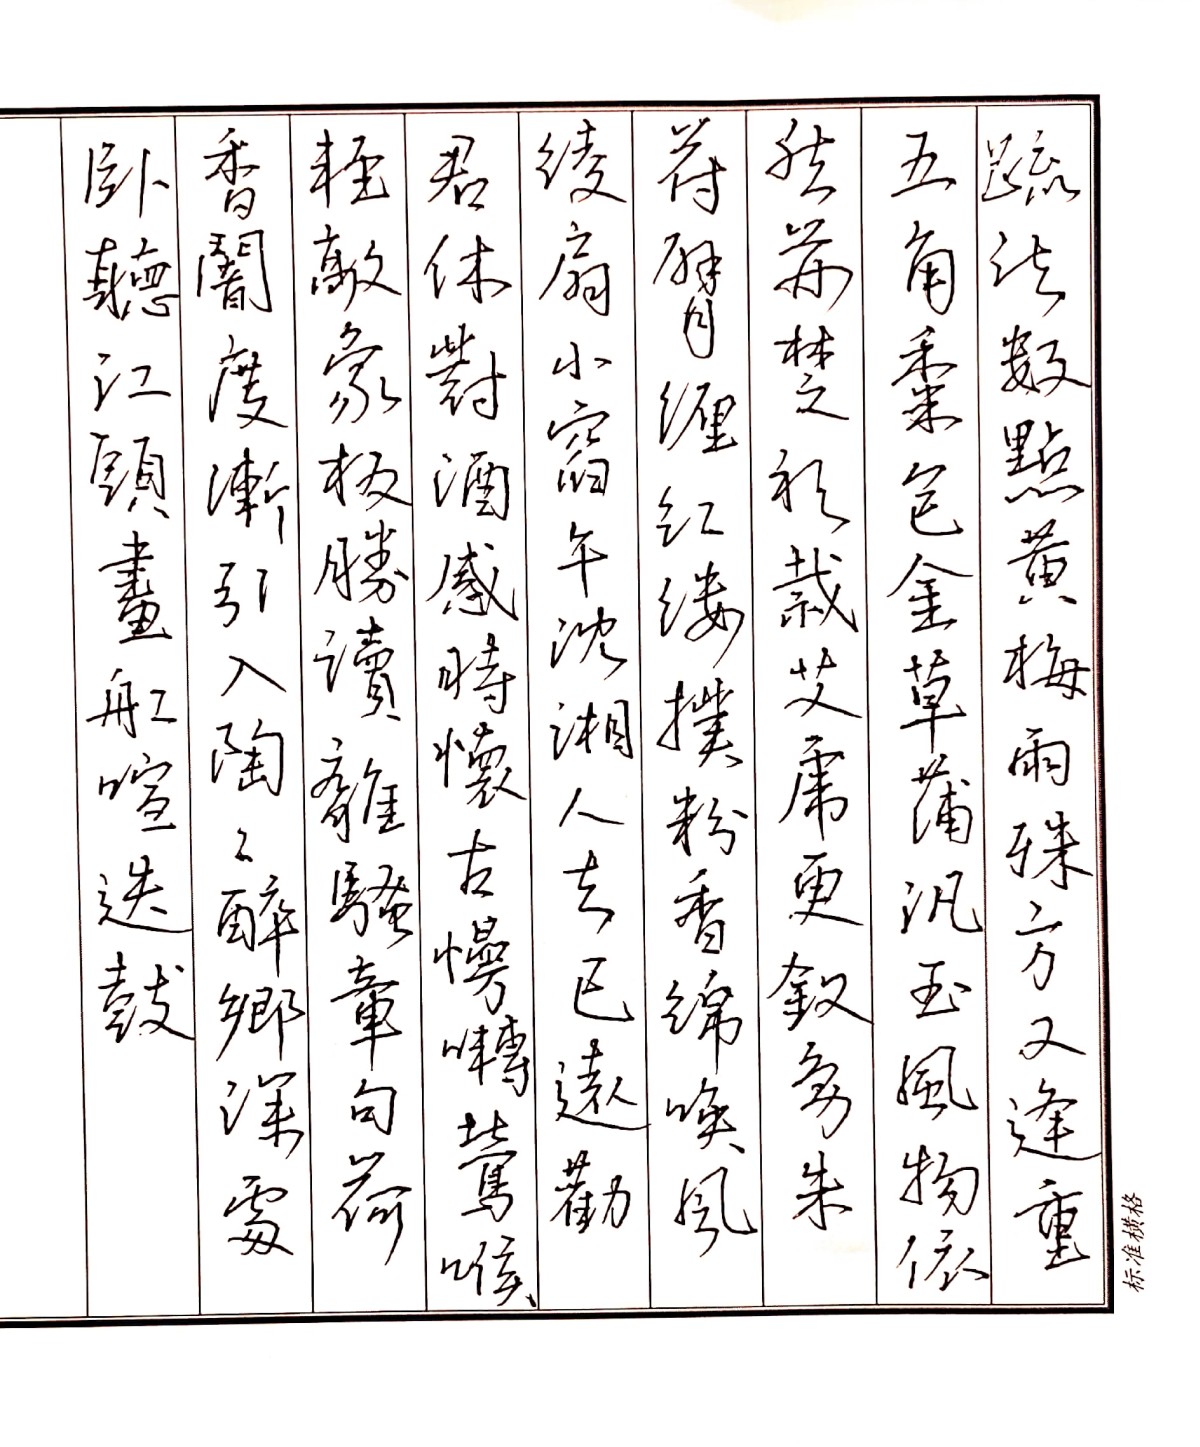 疏疏數點黃梅雨殊方又逢重
五角黍包金草蒲汎玉風物依
然荊楚衫裁艾虎更釵裊朱
符臂纏紅縷撲粉香綿喚風
綾扇小窗午沈湘人去已遠勸
君休對酒感時懷古慢囀鶯喉
輕敲象板勝讀離騷章句荷
香闇度漸引入陶〻醉鄉深處
卧聽江頭畫船喧迭鼓
标准横格